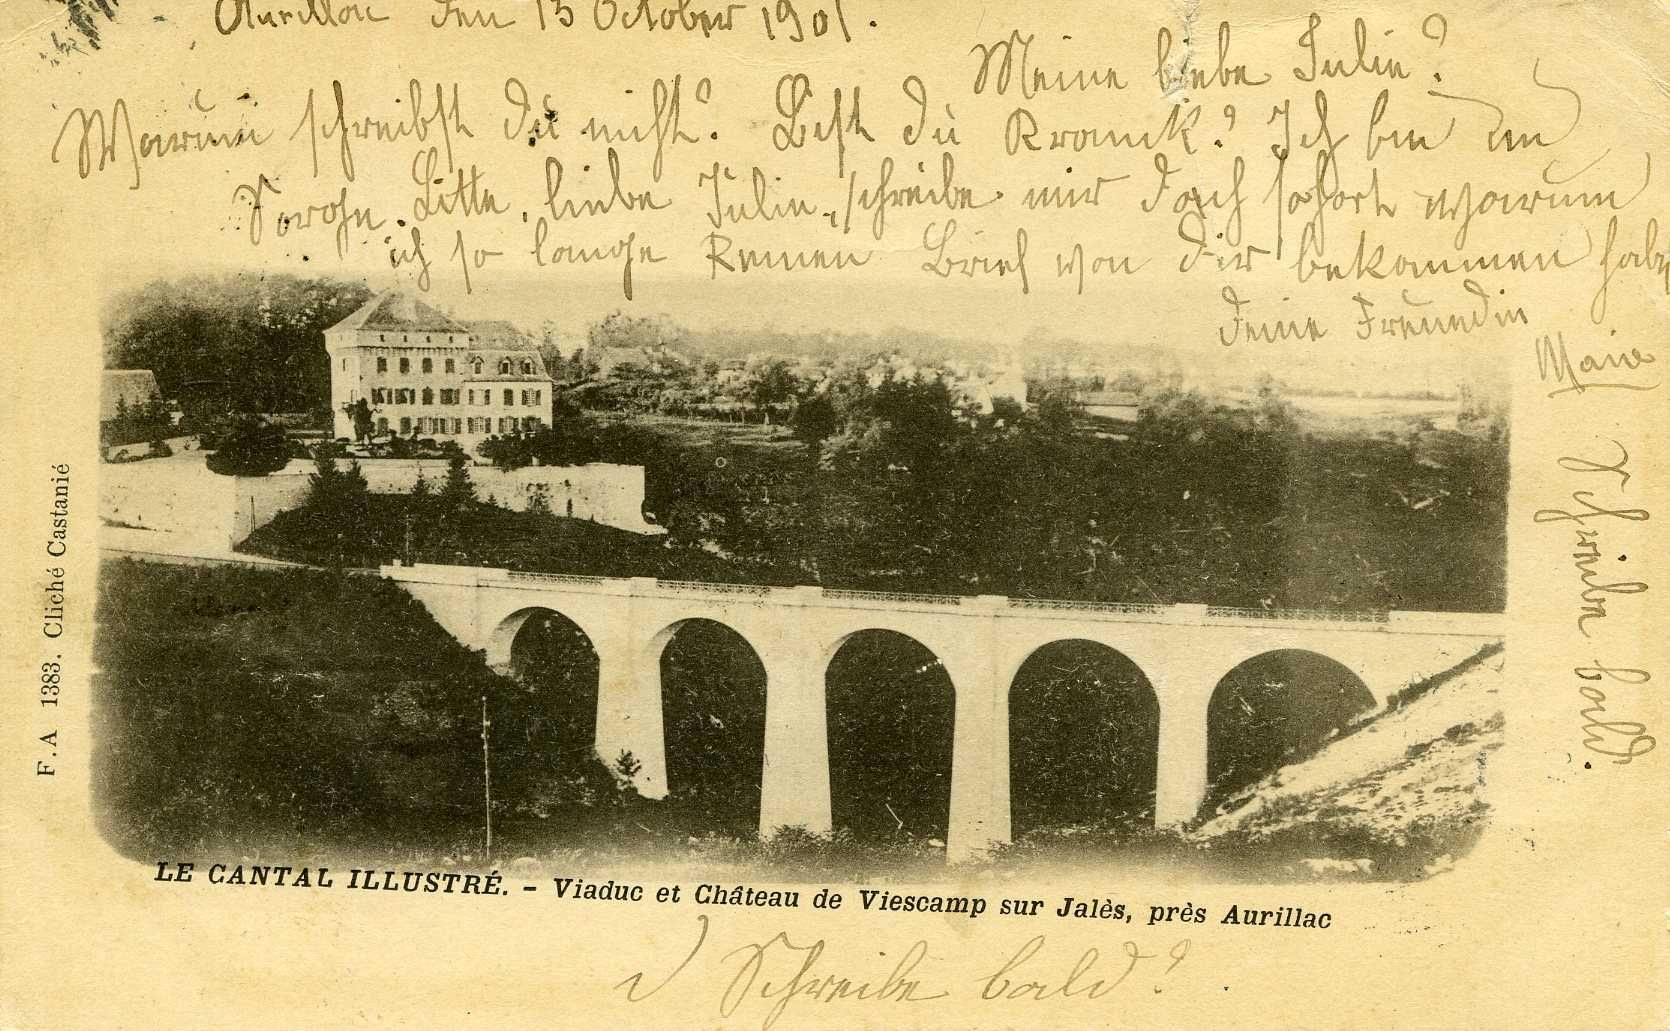 Aurillac den 13 October 1901.
Meine liebe Julie?
Warum schreibst du nicht? Bist du Kranck? Ich bin in
Sorge. Bitte, liebe Julie, schreibe mir doch sofort warum
ich so lange Keinen Brief von dir bekommen habe
deine Freundin
Marie
Schreibe bald.
F.A 1383. Cliché Castanié
LE CANTAL ILLUSTRÉ. - Viaduc et Château de Viescamp sur Jalès, près Aurillac
Schreibe bald?